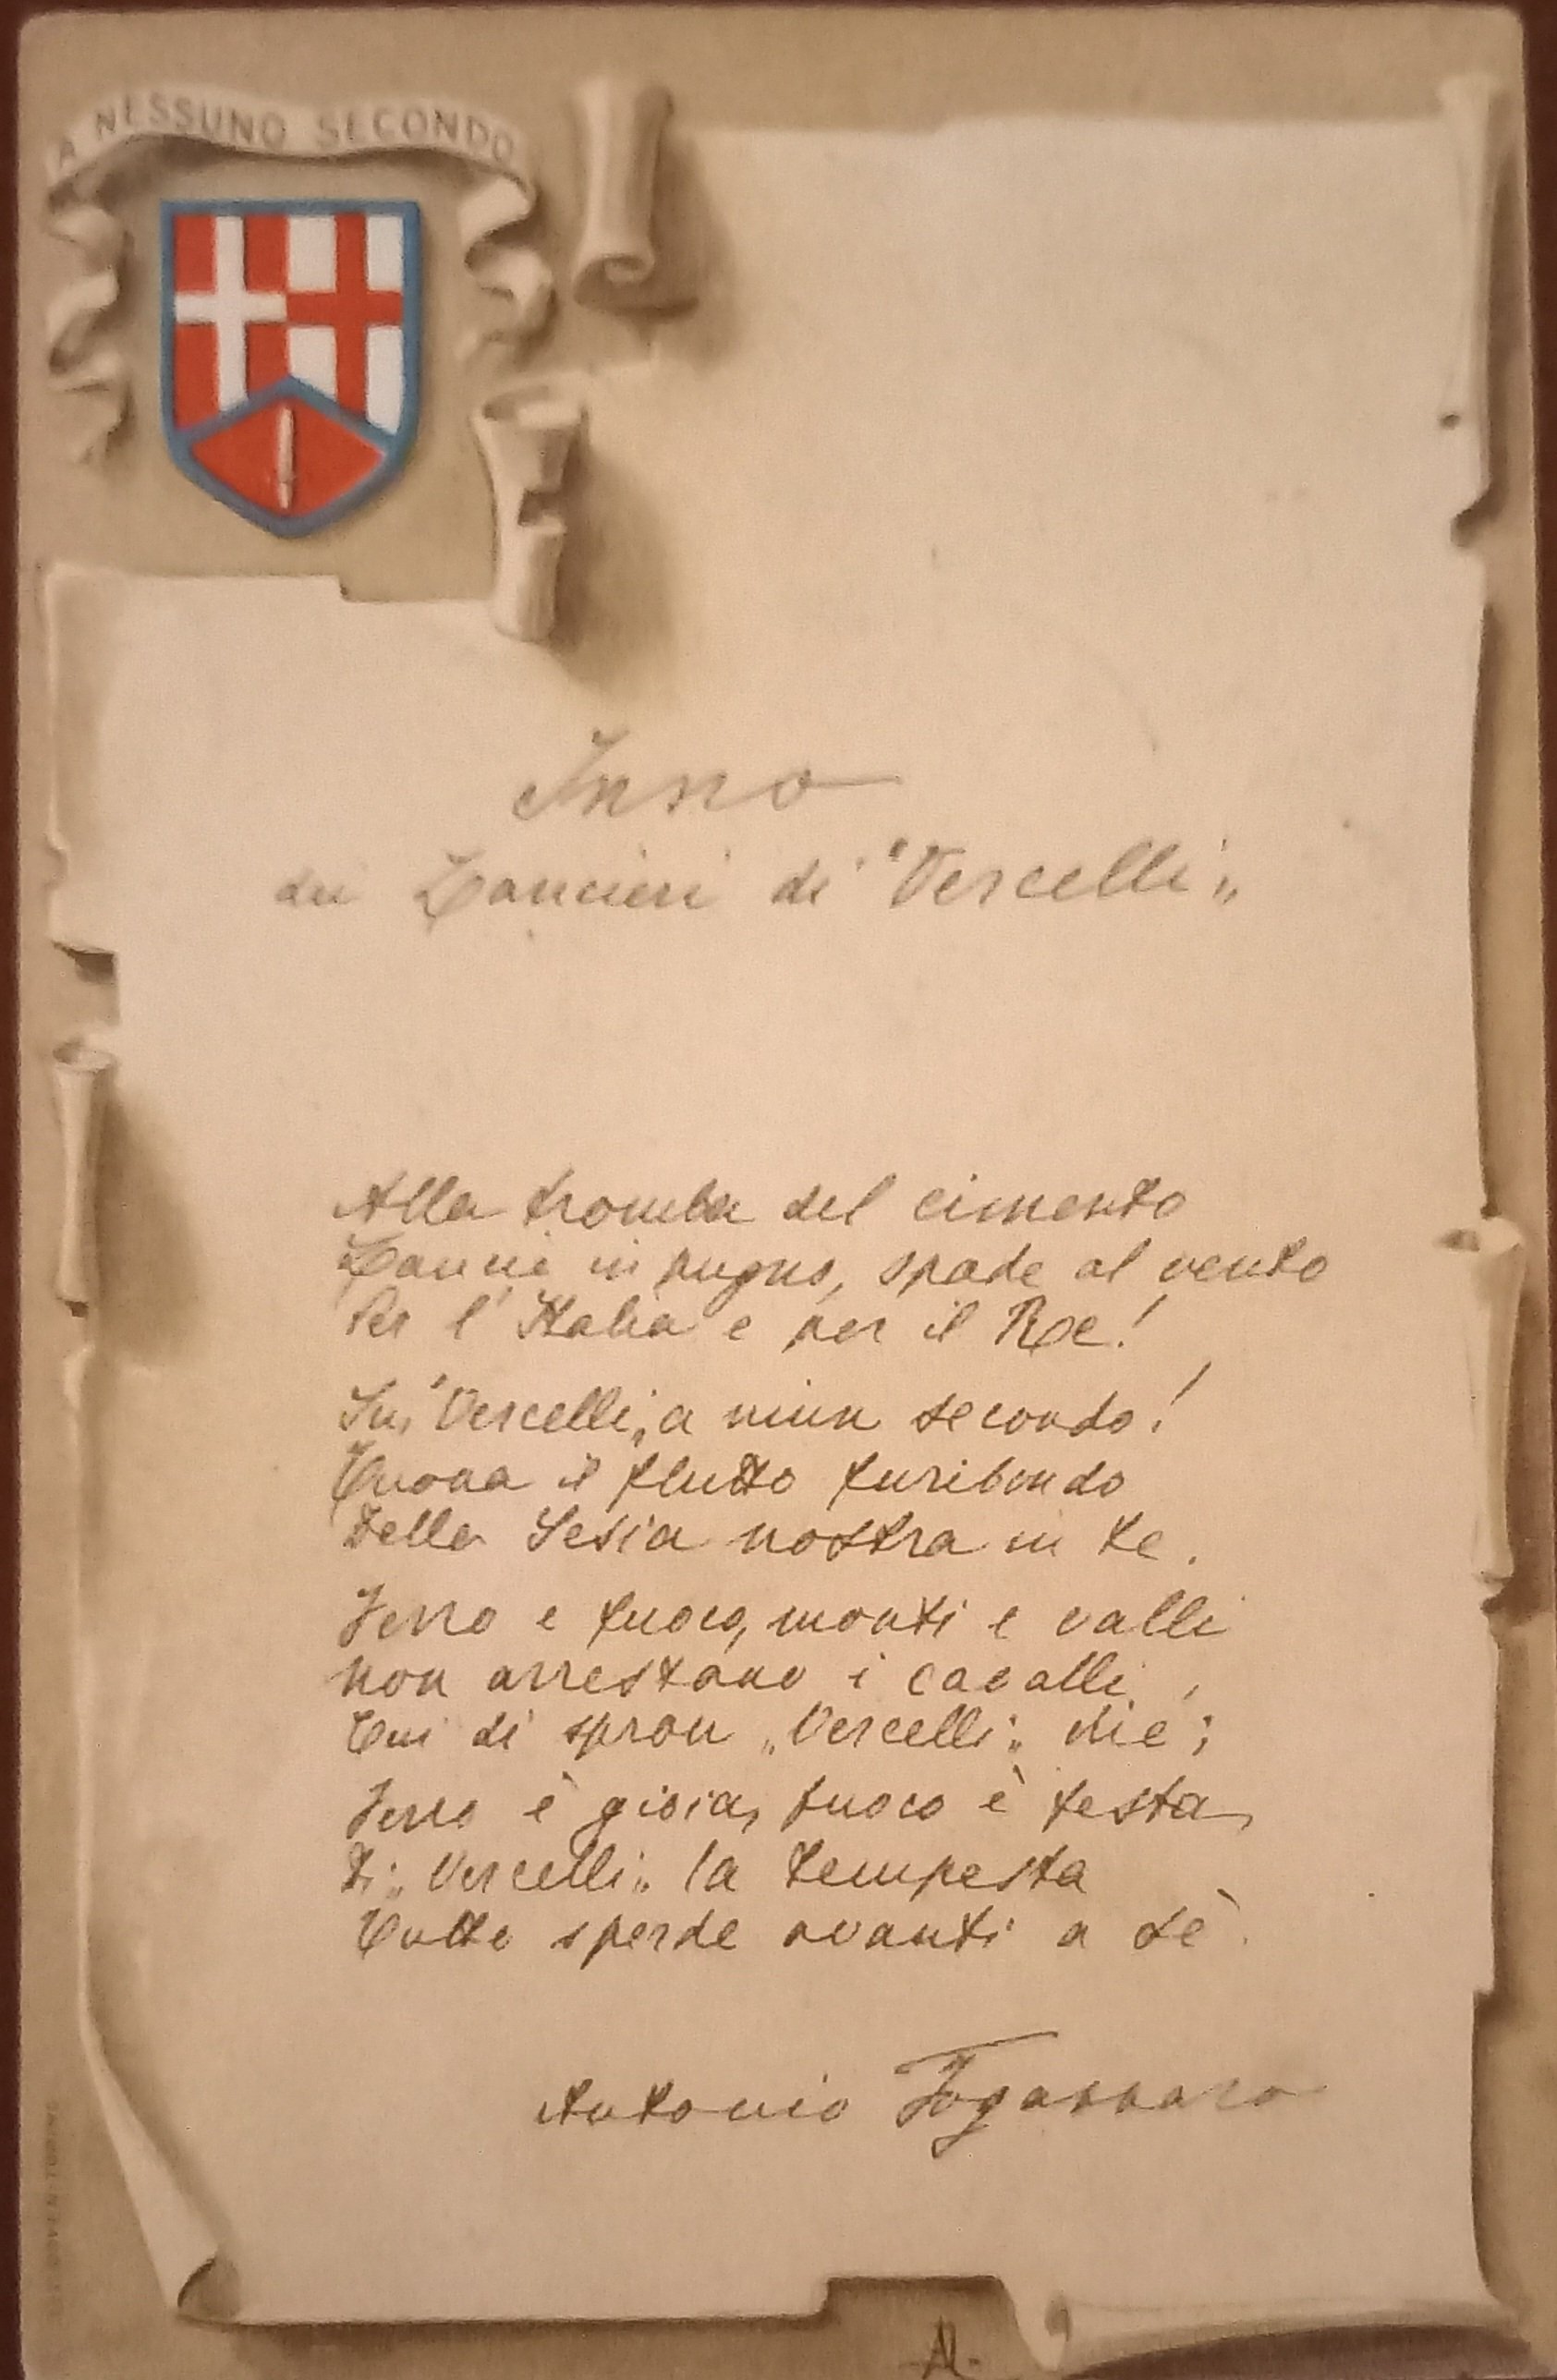 A NESSUNO SECONDO
Inno
dei Lancieri di "Vercelli„
Alla tromba del cimento
Lancie in pugno, spade al vento
Per l'Italia e per il Re!
Su, "Vercelli„ a niun secondo!
Tuona il flutto furibondo
Della Sesia nostra in te.
Ferro e fuoco, monti e valli
non arrestano i cavalli,
Cui di spron „Vercelli„ diè;
Ferro è gioia, fuoco è festa,
Di „Vercelli„ la tempesta
Tutto sperde avanti a sè.
Antonio Fogazzaro